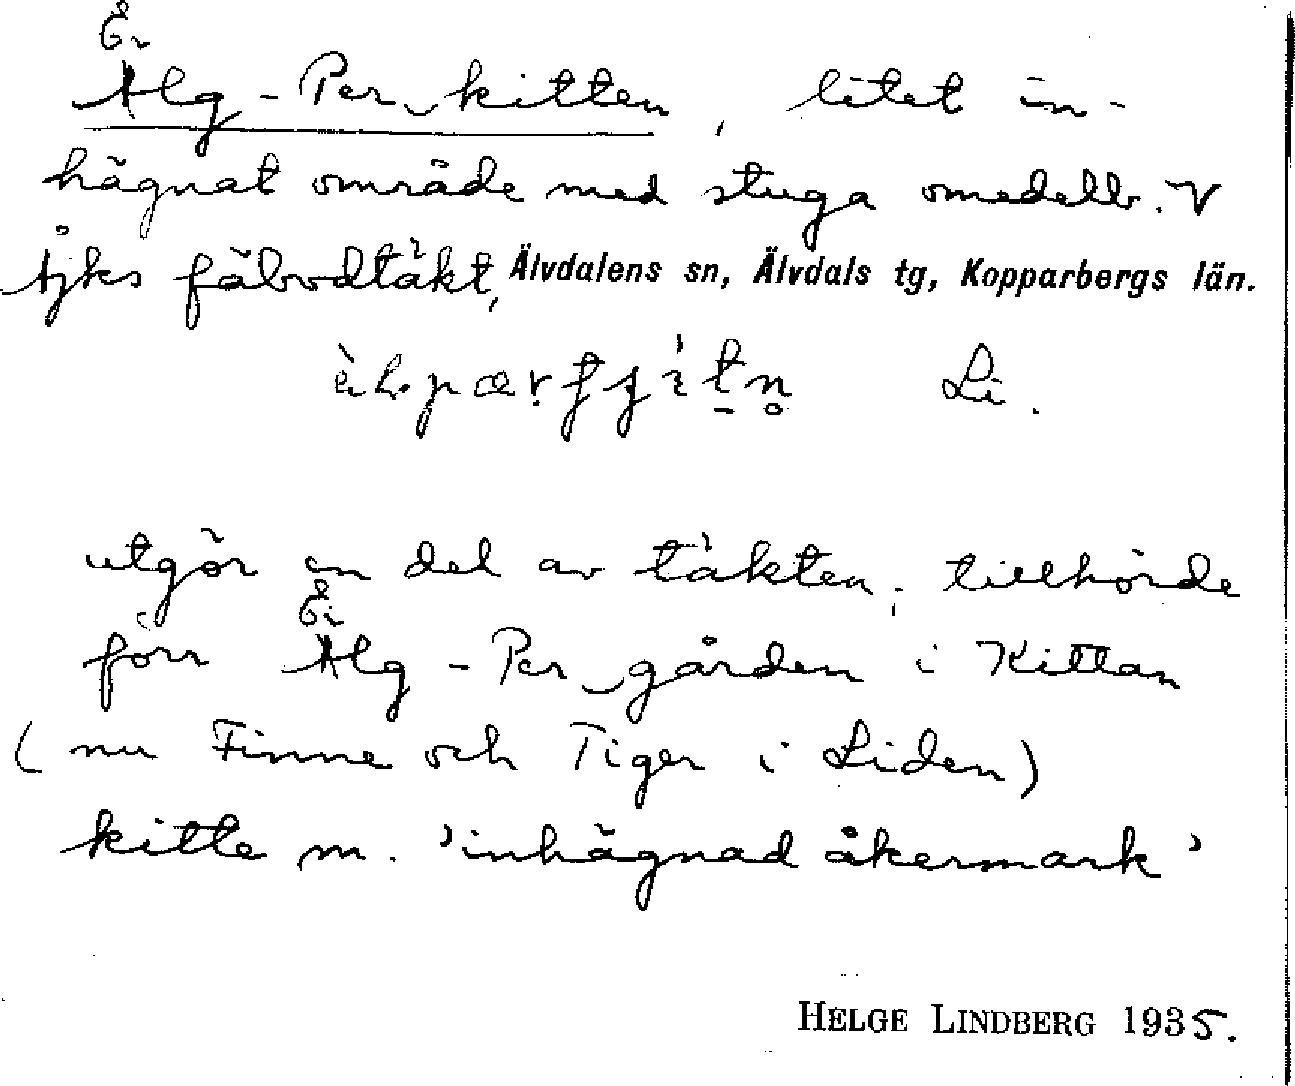 Älg-Per kitten, litet in-
hägnat område med stuga omedelb. V
fäbodtäkt, Älvdalens sn, Älvdals tg, Kopparbergs län.
Li.
utgör en del av täkten, tillhörde
förr Älg-Per gården i Kittan
(nu Finne och Tiger i Liden)
kitte m. 'inhägnad åkermark'
HELGE LINDBERG 1935.